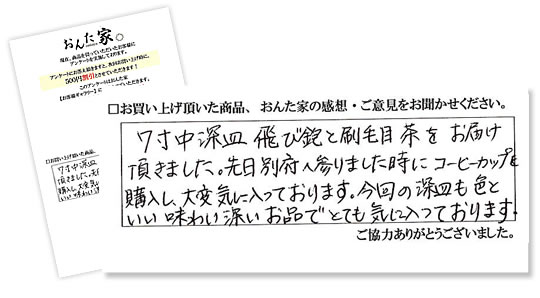 おんた家。
現在、商品を買っていただいたお客様に
アンケートを実施しております。
アンケートにお答え頂きますと、次回お買い上げ時に、
500円割引とさせていただきます!
このアンケートはおんた家
【お客様ギャラリー】に
□お買い上げ頂いた商品、
7寸中深皿
頂きました。先
購入し、大変気
いい味わい
□お買い上げ頂いた商品、おんた家の感想・ご意見をお聞かせください。
7寸中深皿 飛び鉋と刷毛目 茶を お届け
頂きました。先日別府へ参りました時に コーヒーカップを
購入し、大変気に入っております。今回の深皿も色と
いい 味わい深い お品で とても 気に入っております。
ご協力ありがとうございました。